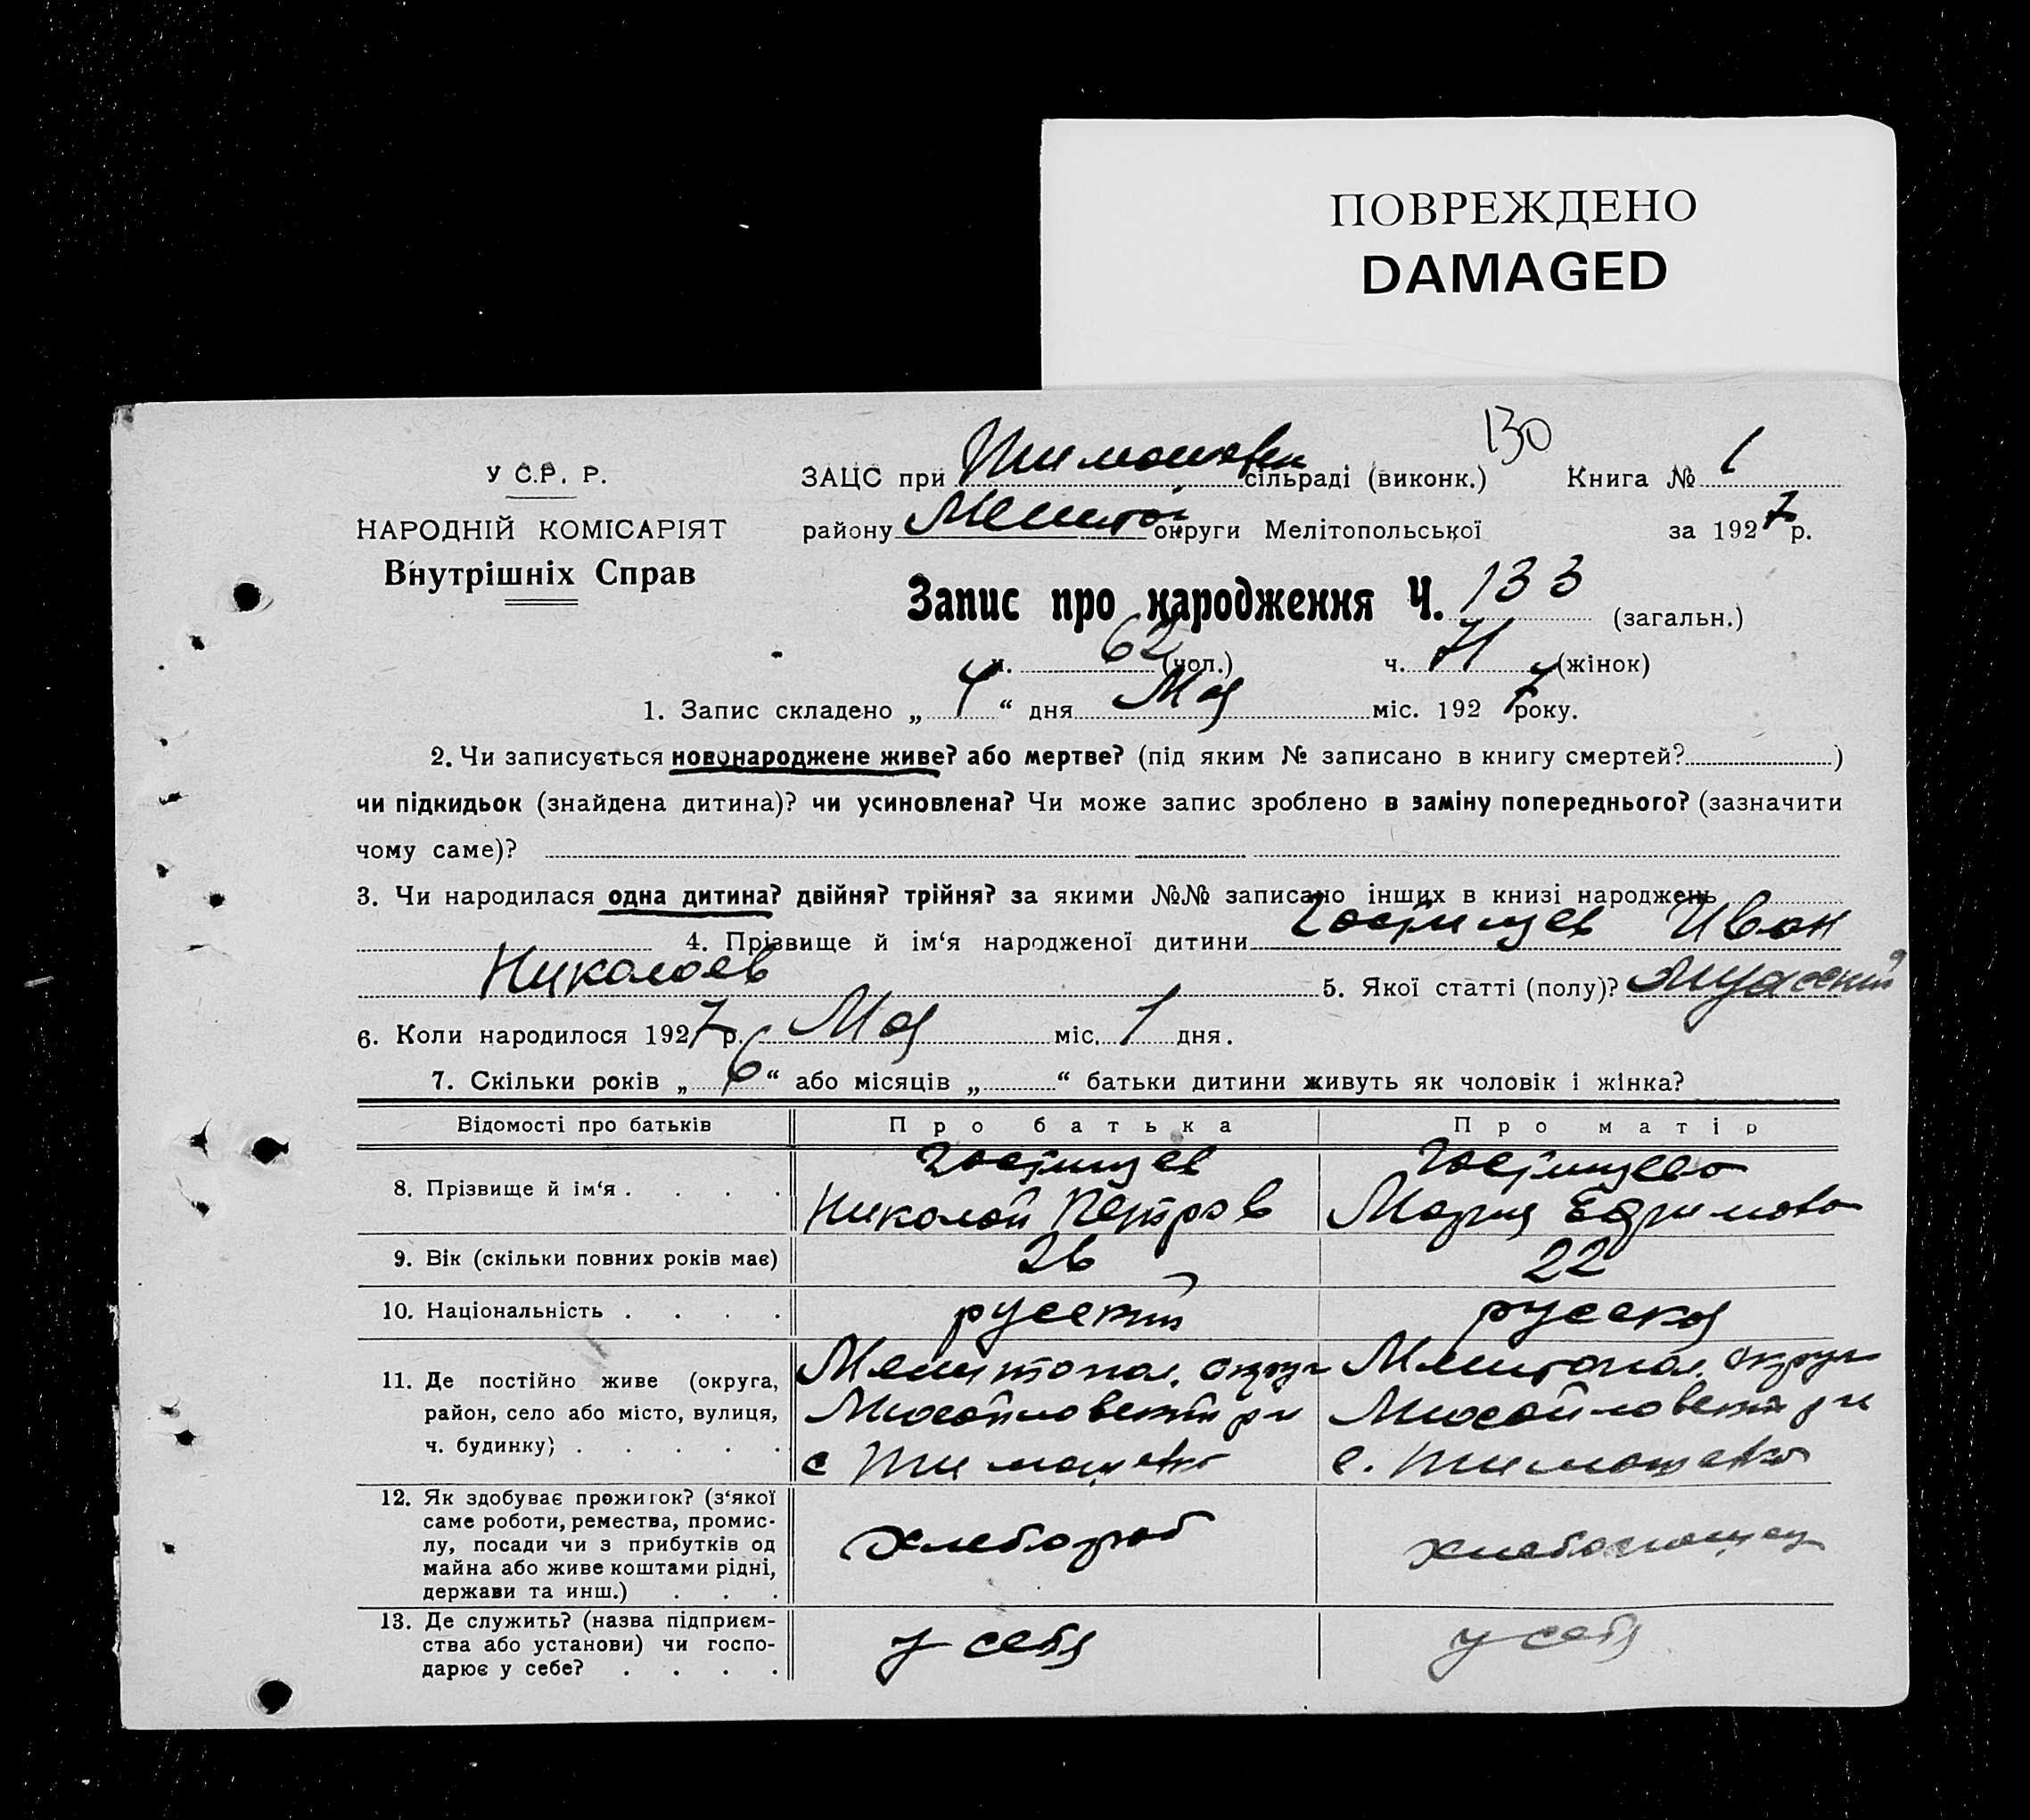 ПОВРЕЖДЕНО
DAMAGED
130
У С.Р. Р.
НАРОДНІЙ КОМІСАРІЯТ
Внутрішніх Справ
ЗАЦС при Тимошовск сільраді (виконк.) Книга № 1
району Мелитоп округи Мелітопольської за 1927 р.
Запис про народження Ч. 133 (загальн.)
ч. 62 (чол.) ч. 71 (жінок)
1. Запис складено „ 4 “ дня Мая міс. 1927 року.
2. Чи записується новонароджене живе? або мертве? (під яким № записано в книгу смертей? )
чи підкидьок (знайдена дитина)? чи усиновлена? Чи може запис зроблено в заміну попереднього? (зазначити
чому саме)?
3. Чи народилася одна дитина? двійня? трійня? за якими №№ записано інших в книзі народжень
4. Прізвище й ім‘я народженої дитини Гостищев Иван
Николаев 5. Якої статті (полу)? мужеский
6. Коли народилося 1927 р. Мая міс. 1 дня.
7. Скільки років „ 6 “ або місяців „ “ батьки дитини живуть як чоловік і жінка?
Відомості про батьків Про батька Про матір
8. Прізвище й ім‘я . . . . Гостищев Гостищева
Николай Петров Мария Ефимова
9. Вік (скільки повних років має) 26 22
10. Національність . . . . русский русская
11. Де постійно живе (округа, Мелитопол. округ Мелитопол. округ
район, село або місто, вулиця, Михайловский р-н Михайловский р-н
ч. будинку) . . . . . с Тимошевка с. Тимошевка
12. Як здобуває прожиток? (з‘якої
саме роботи, ремества, промис-
лу, посади чи з прибутків од хлебороб
майна або живе коштами рідні,
держави та инш.) . . .
13. Де служить? (назва підприєм-
ства або установи) чи госпо- у себя у себя
дарює у себе? . . . .